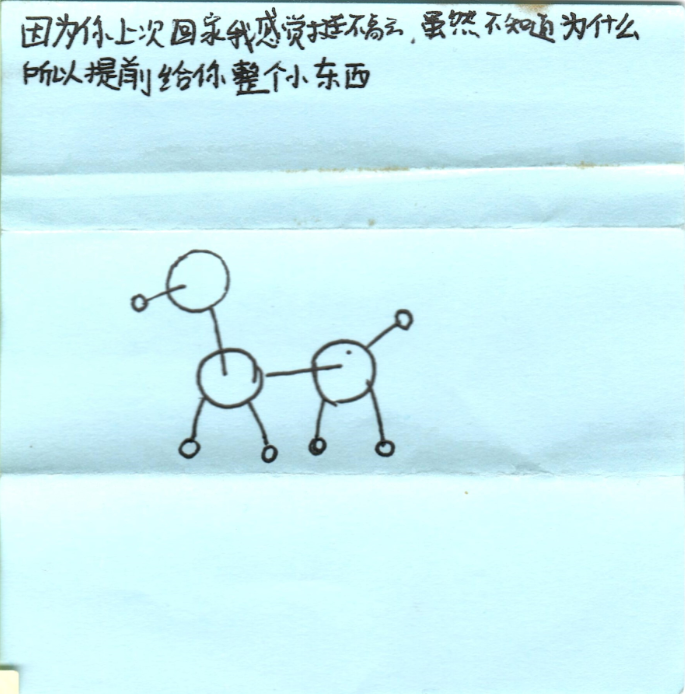 因为你上次回家我感觉挺不高兴,虽然不知道为什么
所以提前给你整个小东西